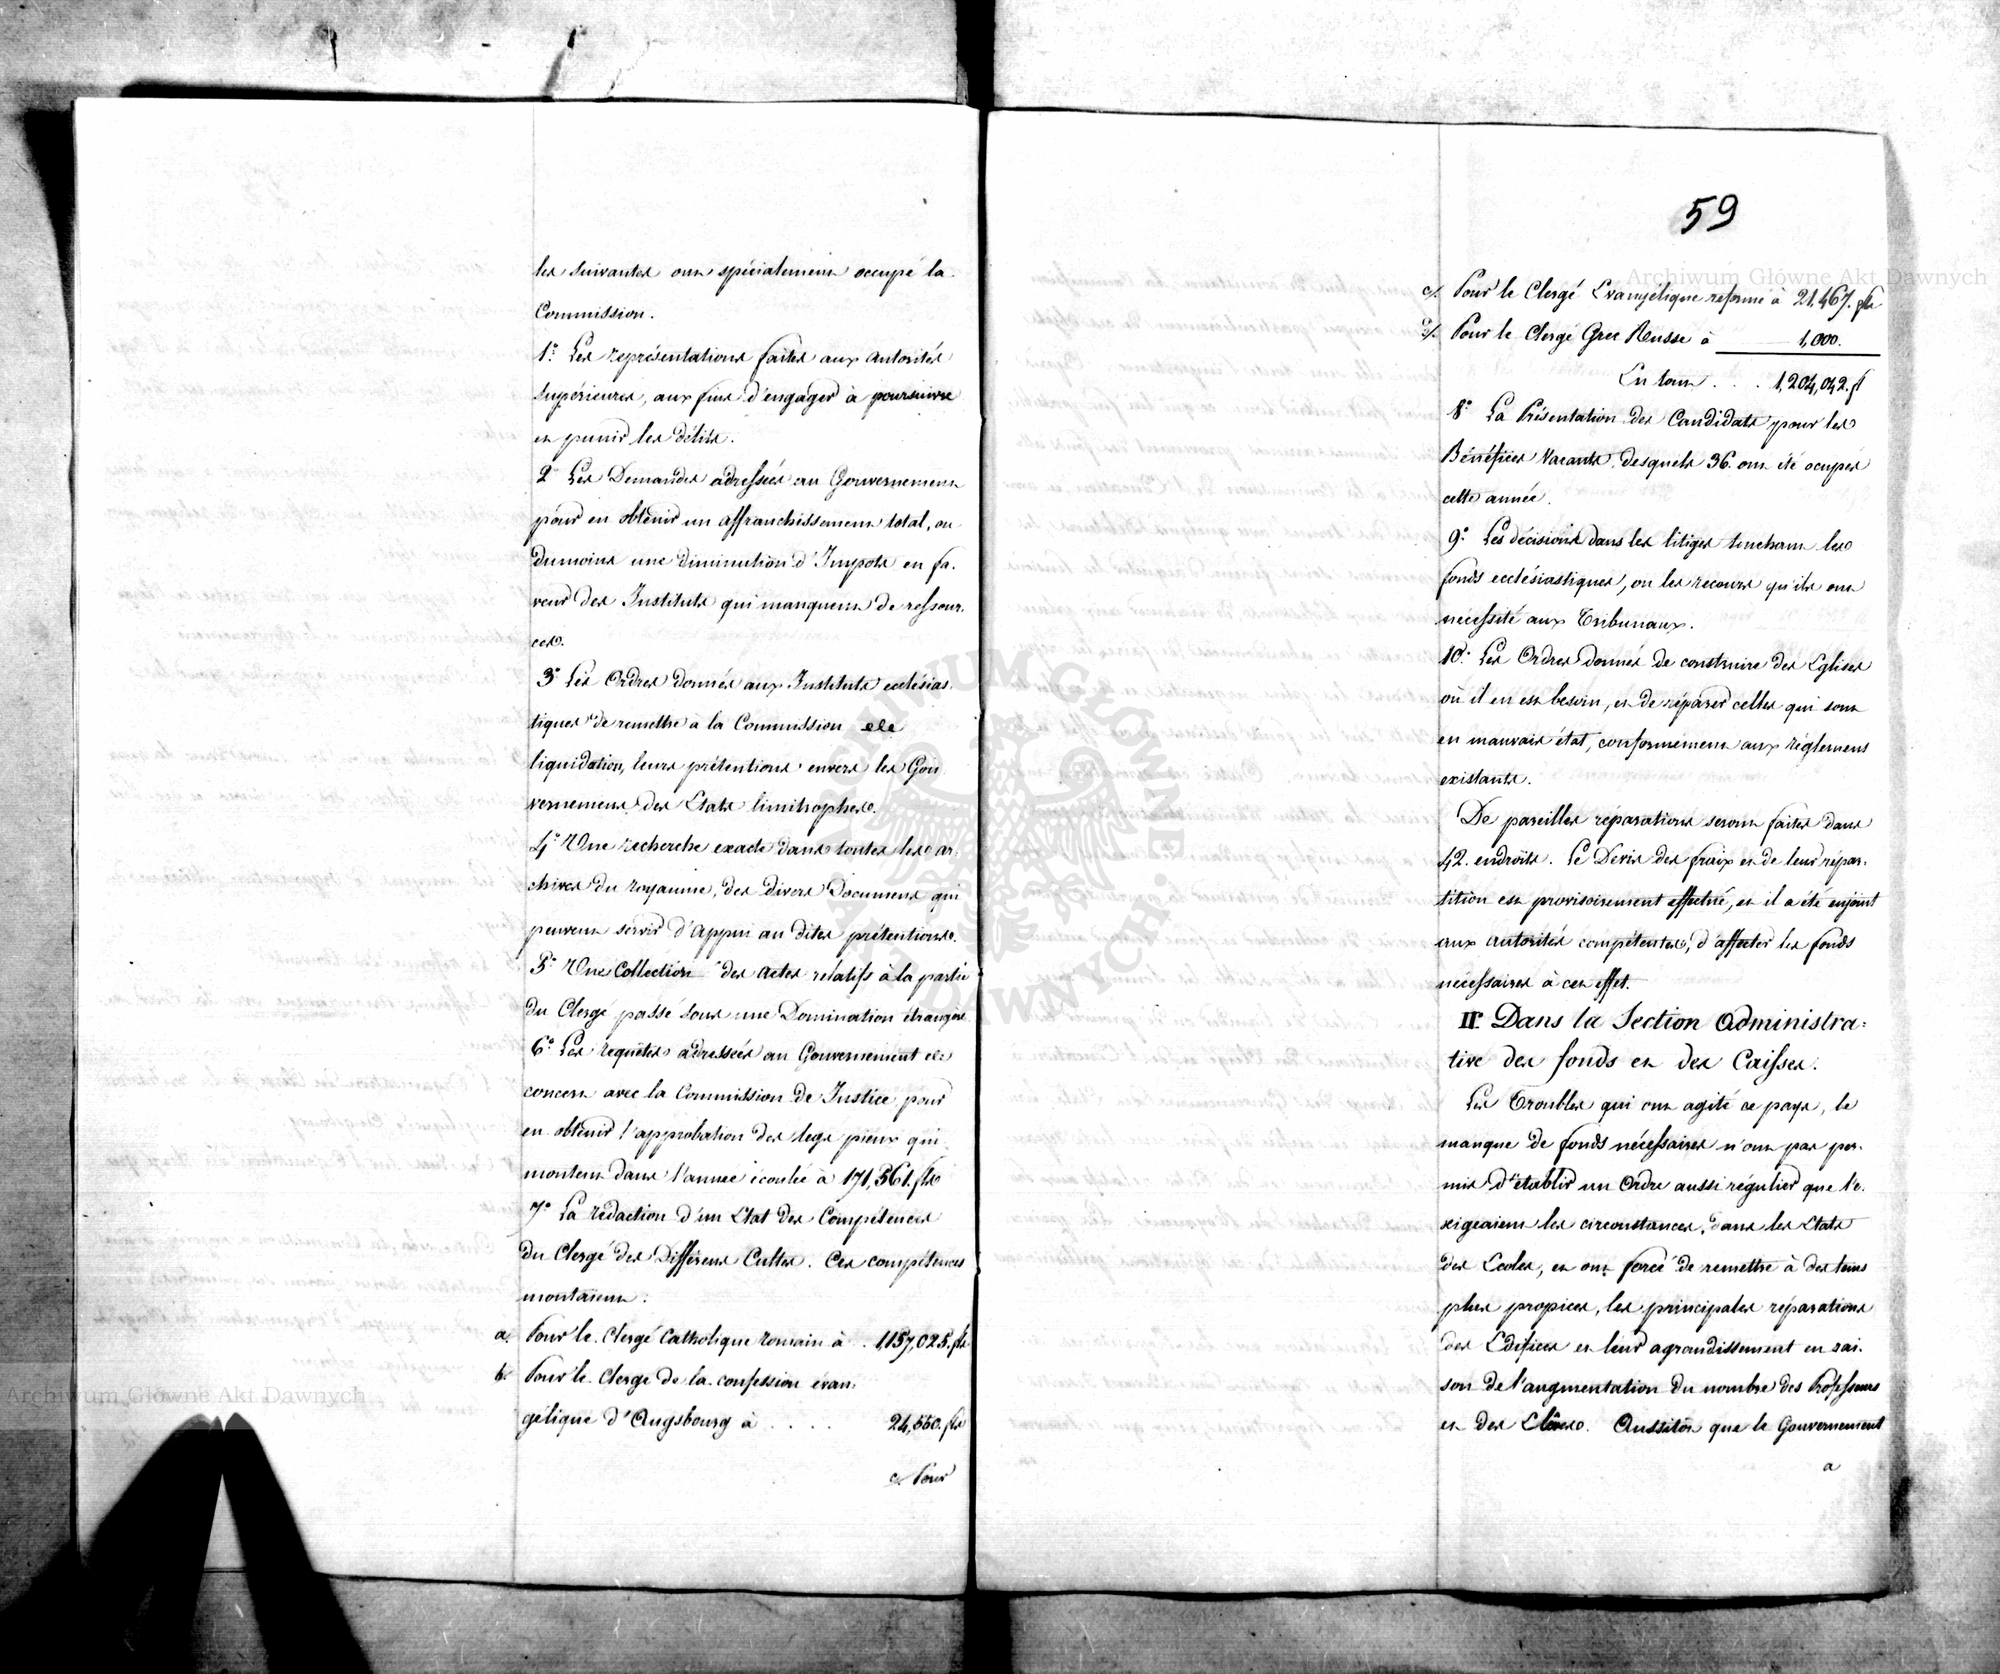 les suivantes ont spécialement occupé la
Commission.
1° Les représentations faites aux autorités
supérieures, aux fins d'engager à poursuivre
et punir les délits.
2° Les Demandes adressées au Gouvernement
pour en obtenir un affranchissement total, ou
dumoins une diminution d'Impots en fa-
veur des Instituts qui manquent de ressour-
ces.
3° Les Ordres donnés aux Instituts ecclésias-
tiques de remettre a la Commission de
liquidation, leurs prétentions envers les Gou-
vernemens des Etats limitrophes.
4° Une recherche exacte dans toutes les ar-
chives du royaume, des divers Documens qui
peuvent servir d'Appui au dites prétentions.
5° Une Collection des actes relatifs à la partie
du Clergé passé sous une Domination étrangère
6° Les requêtes adressées au Gouvernement de
concert avec la Commission de Justice pour
en obtenir l'approbation des legs pieux qui
montent dans l'année écoulée à 171,561. fls
7° La rédaction d'un Etat des Compétences
du Clergé des Différens Cultes. Ces compétences
montaient:
a. Pour le Clergé Catholique romain à . 1,157,025. fls
b. Pour le Clergé de la confession évan-
gélique d'Augsbourg à . . . . 24,550. fls
c. Pour
59
c/. Pour le Clergé Evangélique reformé à 21.467. fls
d/. Pour le Clergé Grec Russe à 1,000.
En tout . . . 1,204,042. f
8° La Présentation des Candidats pour les
Bénéfices Vacants, desquels 36. ont été ocupés
cette année.
9° Les décisions dans les litiges touchant les
fonds ecclésiastiques, ou les recours qu'ils ont
nécessité aux Tribunaux.
10° Les Ordres donnés de construire des Eglises
où il en est besoin, et de réparer celles qui sont
en mauvais état, conformément aux réglemens
existants.
De pareilles réparations seront faites dans
42. endroits. Le Devis des fraix et de leur répar-
tition est provisoirement effectué, et il a été enjoint
aux autorités compétentes, d'affecter les fonds
nécessaires à cet effet.
II° Dans la Section Administra-
tive des fonds et des Caisses.
Les Troubles qui ont agité ce pays, le
manque de fonds nécessaires n'ont pas per-
mis d'établir un Ordre aussi régulier que l'e-
xigeaient les circonstances, dans les Etats
des Ecoles, et ont forcé de remettre à des tems
plus propices, les principales réparations
des Edifices et leur agrandissement en rai-
son de l'augmentation du nombre des Professeurs
et des Elèves. Aussitôt que le Gouvernement
a
Archiwum Główne Akt Dawnych
Archiwum Główne Akt Dawnych
ARCHIWUM GŁÓWNE AKT DAWNYCH